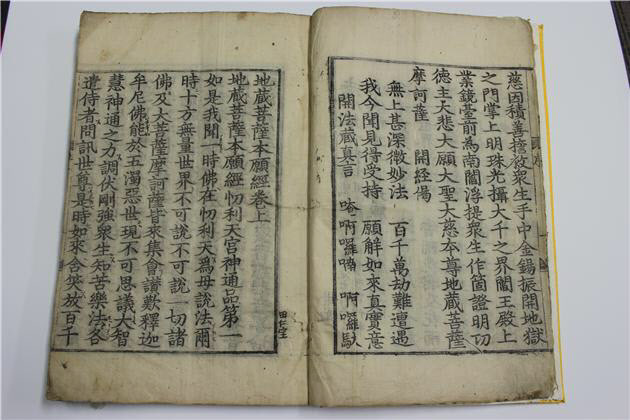 慈因積善誓救衆生手中金錫振開地獄
之門掌上明珠光攝大千之界閻王殿上
業鏡臺前為南閻浮提衆生作箇證明功
德主大悲大願大聖大慈本尊地蔵菩薩
摩訶薩 開經偈
無上甚深微妙法 百千萬劫難遭遇
我今聞見得受持 願解如來真實意
開法蔵真言 唵 啊囉喃 啊囉馱
地蔵菩薩本願經卷上
地蔵菩薩本願經忉利天宮神通品第一
如是我聞一時佛在忉利天爲母說法爾
時十方無量世界不可說不可說一切諸
佛及大菩薩摩訶薩皆來集會讃歎釋迦
牟尼佛能於五濁惡世現不可思議大智
慧神通之力調伏剛強衆生知苦樂法各
遣侍者問訊世尊是時如來含笑放百千